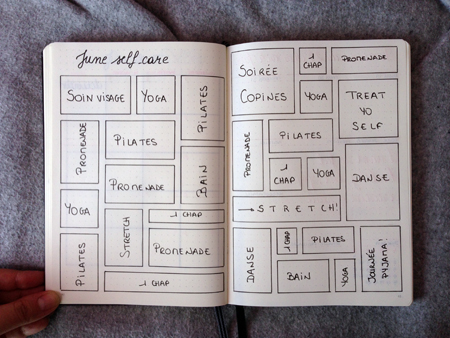 June self-care
SOIN VISAGE
YOGA
PILATES
PROMENADE
PILATES
PROMENADE
BAIN
YOGA
STRETCH
1 CHAP
PILATES
PROMENADE
1 CHAP
SOIRÉE
COPINES
1
CHAP
PROMENADE
YOGA
TREAT
YO
SELF
PROMENADE
PILATES
1
CHAP
YOGA
DANSE
→ STRETCH!
DANSE
1
CHAP
PILATES
BAIN
YOGA
JOURNÉE
PYJAMA!